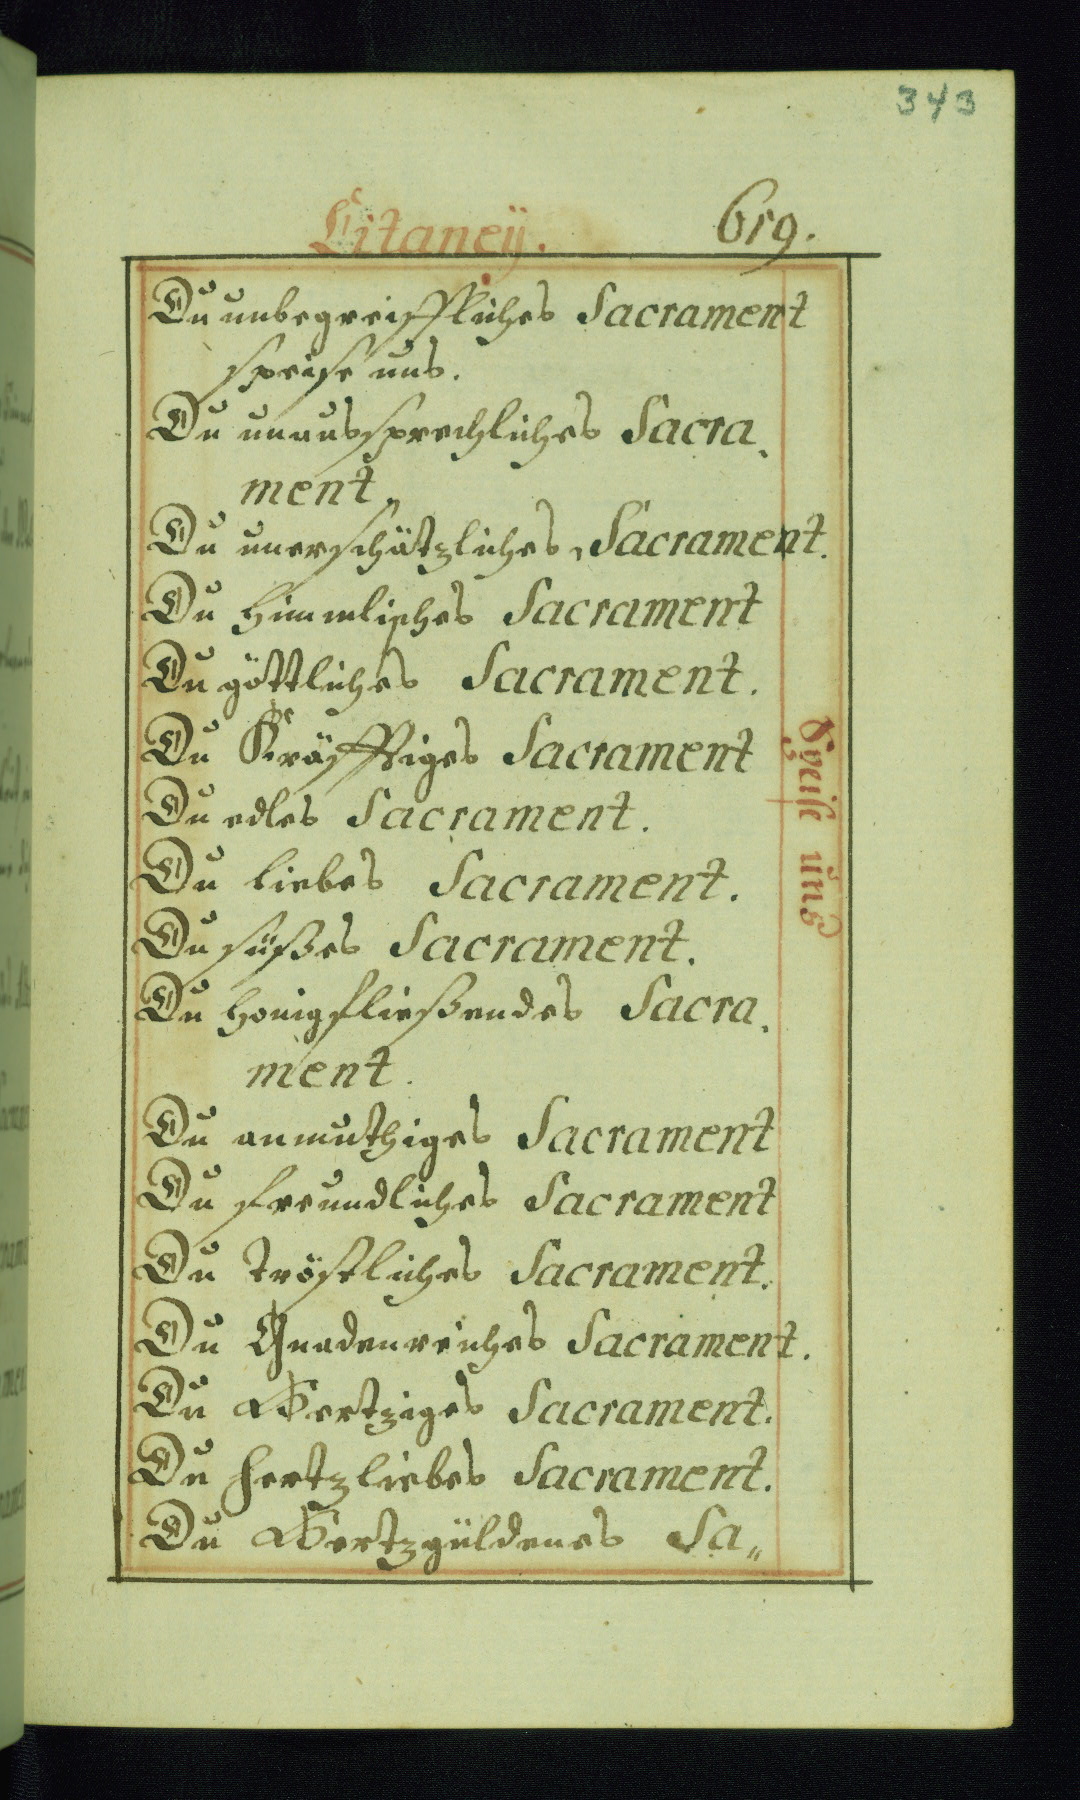 343
Litaneÿ.
619.
Du unbegreiffliches Sacrament
speise uns.
Du unaussprechliches Sacra,
ment,
Du unerschätzliches Sacrament.
Du Himmlisches Sacrament
Du göttliches Sacrament.
Du Kräfftiges Sacrament
Du edles Sacrament.
Du liebes Sacrament.
Du süßes Sacrament.
Du honigfließendes Sacra,
ment.
Du anmuthiges Sacrament
Du freundliches Sacrament
Du tröstliches Sacrament.
Du Gnadenreiches Sacrament.
Du Hertziges Sacrament.
Du hertzliebes Sacrament.
Du Hertzgüldenes Sa„
Speise uns